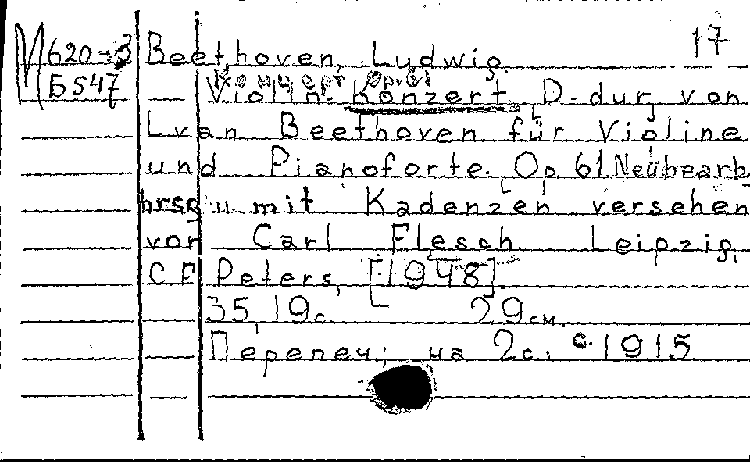 17
М620-3 Beethoven, Ludwig.
Б547
Концерт Op.61
Violin-Konzert, D-dur, von
L van Beethoven für Violine
und Pianoforte. Op 61 Neubearb
hrsg u mit Kadenzen versehen
von Carl Flesch Leipzig,
C F Peters, [1948].
35, 19 с. 29 см.
Перепеч. на 2 с. c 1915